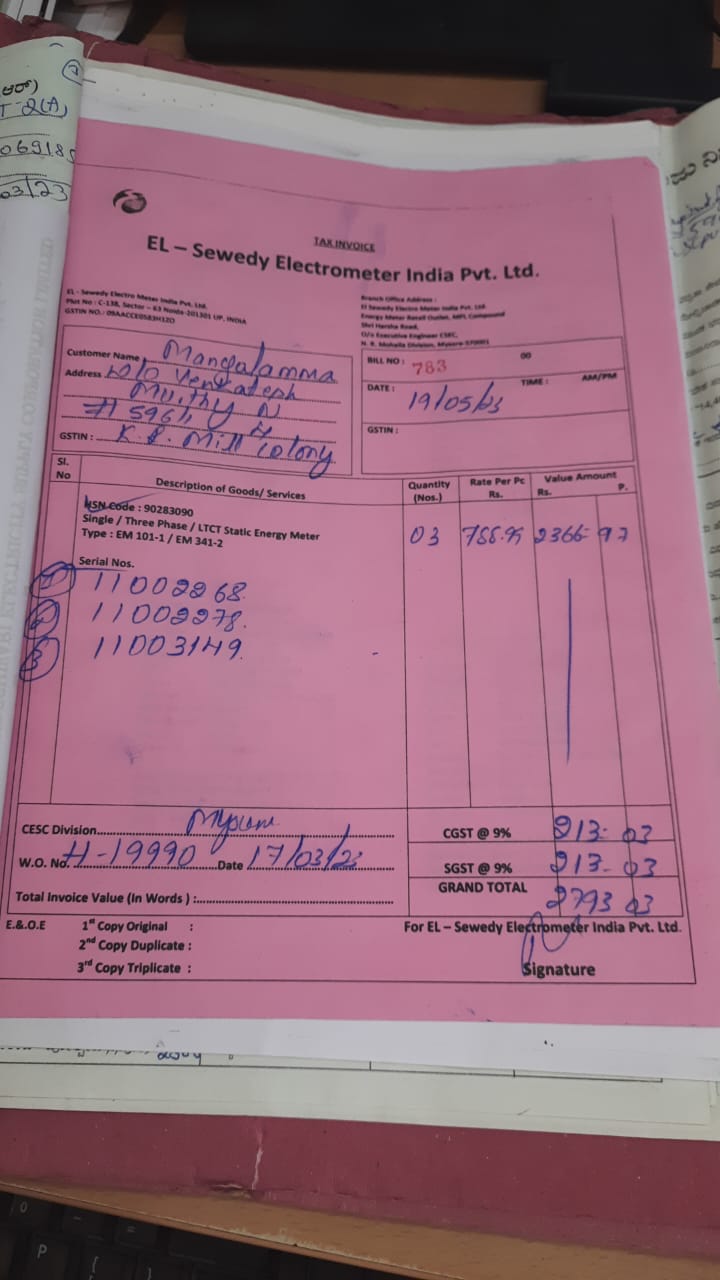 ಆರ್)
T-2(A)
069185
03/23
TAX INVOICE
EL – Sewedy Electrometer India Pvt. Ltd.
EL - Sewedy Electro Meter India Pvt. Ltd.
Plot No : C-138, Sector – 63 Noida-201301 UP, INDIA
GSTIN NO.: 09AACCE0583H1ZO
Branch Office Address :
El Sewedy Electro Meter India Pvt. Ltd.
Energy Meter Retail Outlet, MPL Compound
Shri Harsha Road,
O/o Executive Engineer CSEC,
N. R. Mohalla Division, Mysore-570001
Customer Name Mangalamma
Address W/o Venkatesh
Murthy N
# 5964
GSTIN : K.R. Mill Colony
BILL NO : 783 00
DATE : 19/05/23 TIME : AM/PM
GSTIN :
Sl. No Description of Goods/ Services Quantity (Nos.) Rate Per Pc Rs. Value Amount Rs. P.
HSN Code : 90283090
Single / Three Phase / LTCT Static Energy Meter
Type : EM 101-1 / EM 341-2
03 788.99 2366- 97
Serial Nos.
1 11002268.
2 11002278.
3 11003149.
CESC Division Mysore
W.O. No. H-19990 Date 17/03/23
Total Invoice Value (In Words) :
CGST @ 9% 213- 03
SGST @ 9% 213- 03
GRAND TOTAL 2793 03
E.&.O.E 1st Copy Original :
2nd Copy Duplicate :
3rd Copy Triplicate :
For EL – Sewedy Electrometer India Pvt. Ltd.
Signature